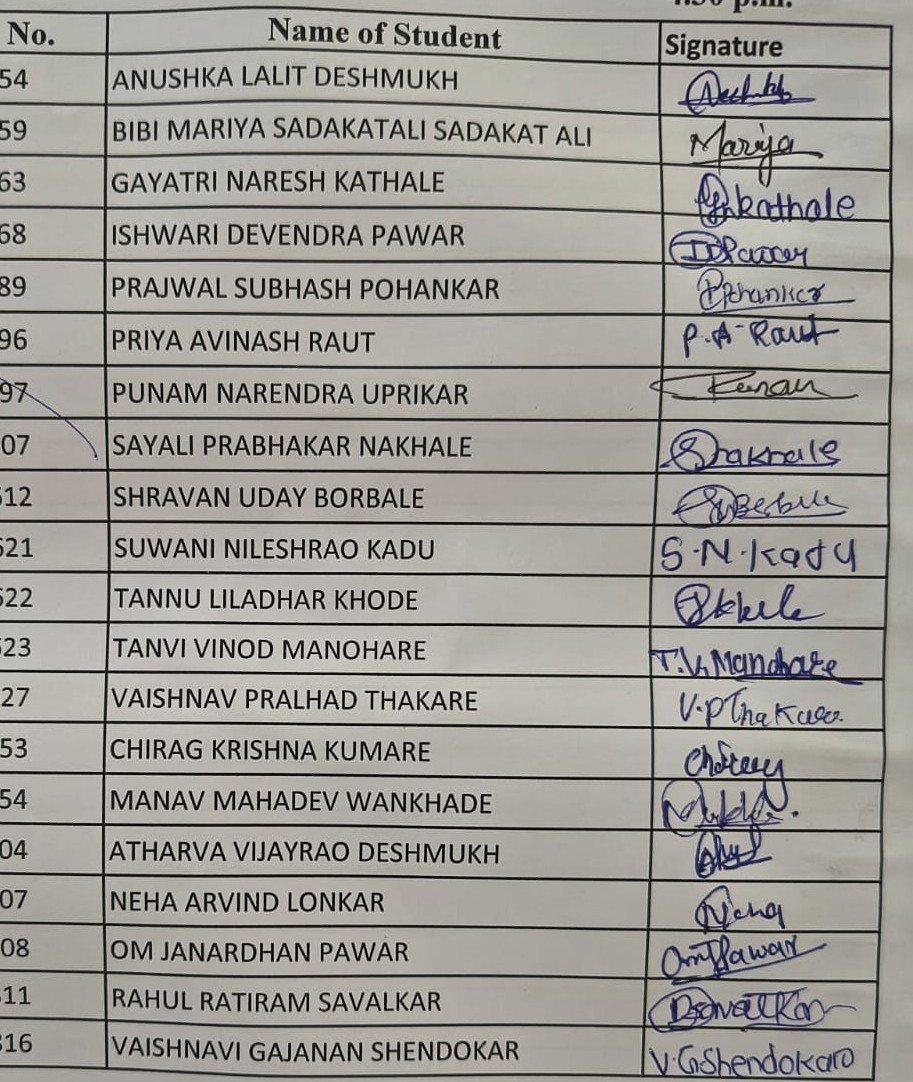 No. Name of Student Signature
54 ANUSHKA LALIT DESHMUKH
59 BIBI MARIYA SADAKATALI SADAKAT ALI Mariya
63 GAYATRI NARESH KATHALE kathale
68 ISHWARI DEVENDRA PAWAR IDPawar
89 PRAJWAL SUBHASH POHANKAR
96 PRIYA AVINASH RAUT P.A-Raut
97 PUNAM NARENDRA UPRIKAR
07 SAYALI PRABHAKAR NAKHALE
12 SHRAVAN UDAY BORBALE
521 SUWANI NILESHRAO KADU S.N.Kadu
522 TANNU LILADHAR KHODE
523 TANVI VINOD MANOHARE T.V.Manohare
27 VAISHNAV PRALHAD THAKARE V.P Thakare
53 CHIRAG KRISHNA KUMARE
54 MANAV MAHADEV WANKHADE
04 ATHARVA VIJAYRAO DESHMUKH
07 NEHA ARVIND LONKAR Neha
08 OM JANARDHAN PAWAR OmJPawar
11 RAHUL RATIRAM SAVALKAR
316 VAISHNAVI GAJANAN SHENDOKAR V.G.Shendokar